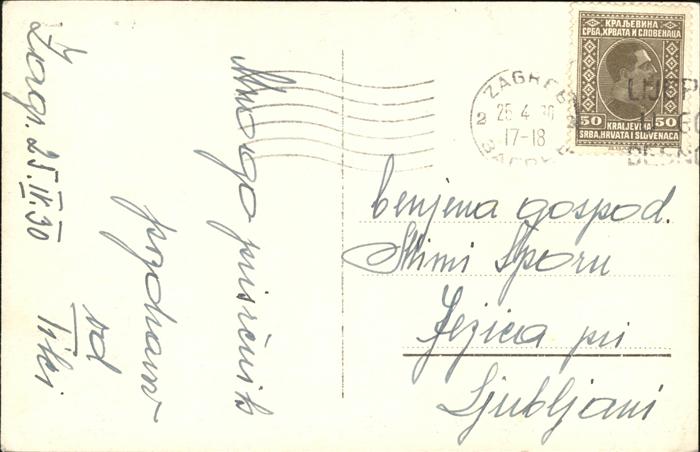 Zagr. 25.IV.30
Mnogo prisrčnih
pozdravov
od
КРАЉЕВИНА
СРБА, ХРВАТА И СЛОВЕНАЦА
50 KRALJEVINA 50
SRBA, HRVATA I SLOVENACA
ZAGREB
2
25 4
17-18
ЗАГРЕБ
Cenjena gospod.
Mimi Šporn
Ježica pri
Ljubljani